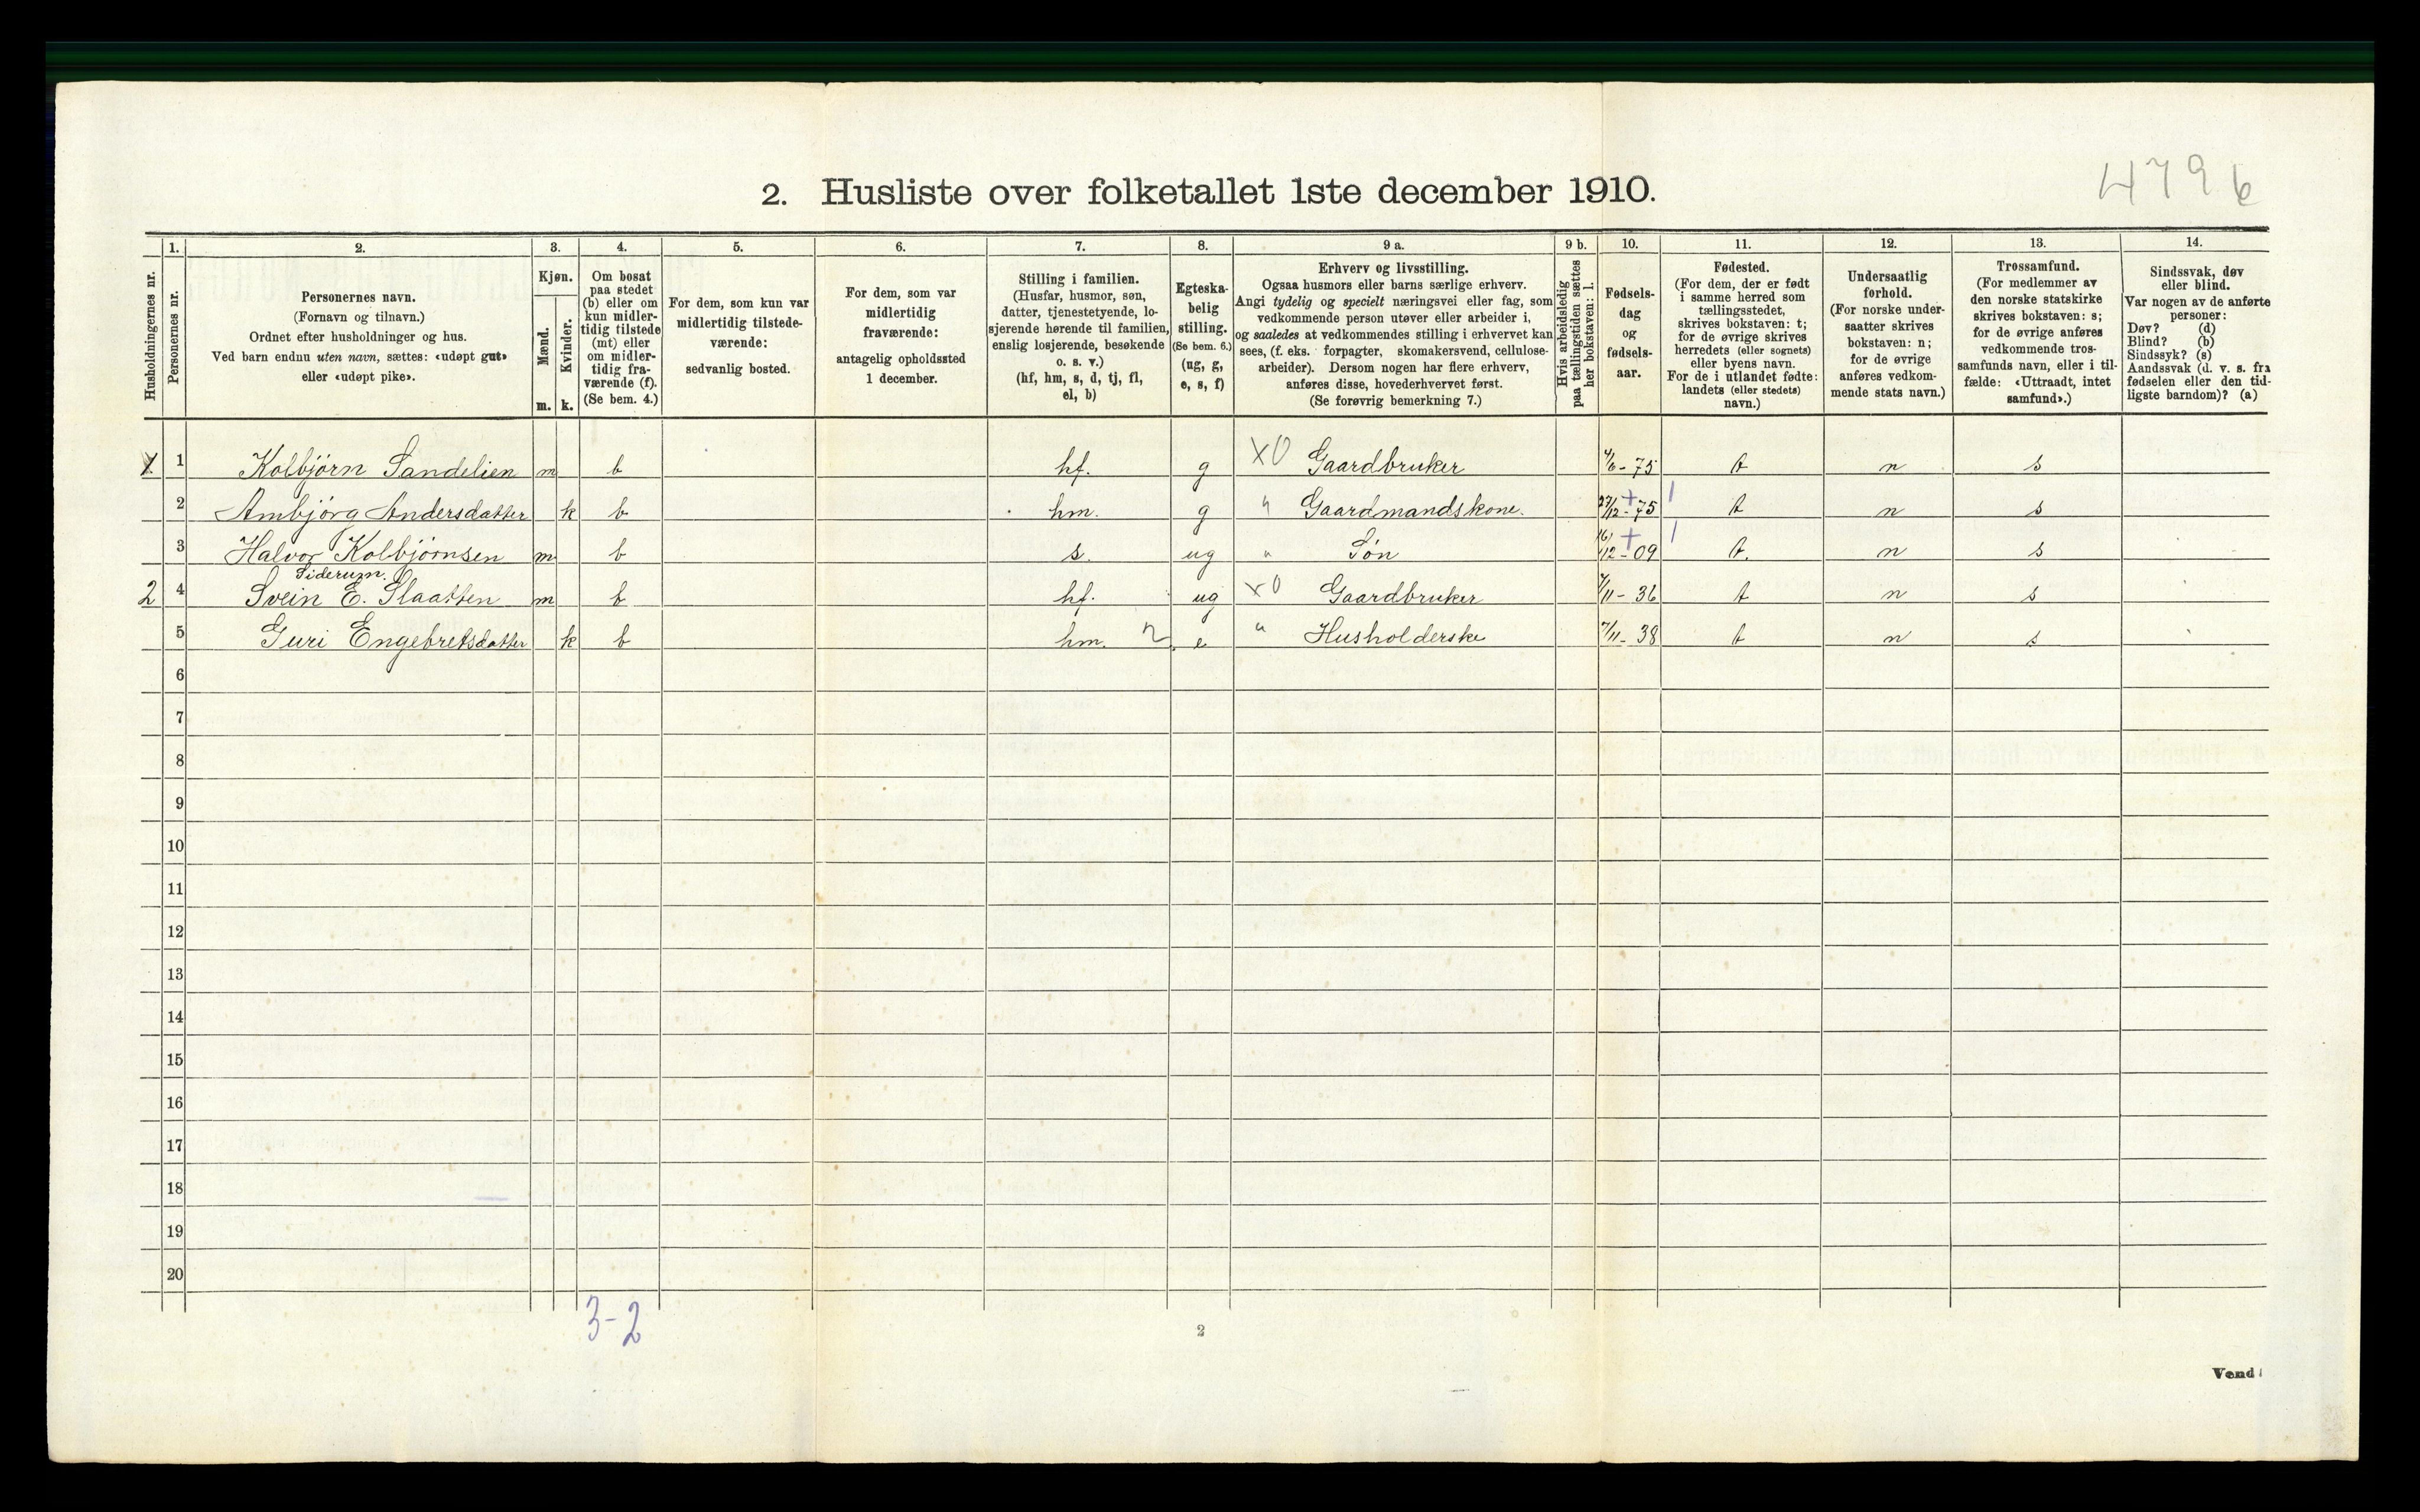 4796
2. Husliste over folketallet 1ste december 1910.
Husholdningernes nr.
1. Personernes nr.
2. Personernes navn.
(Fornavn og tilnavn.)
Ordnet efter husholdninger og hus.
Ved barn endnu uten navn, sættes: «udøpt gut»
eller «udøpt pike».
3. Kjøn.
Mænd. m.
Kvinder. k.
4. Om bosat
paa stedet
(b) eller om
kun midler-
tidig tilstede
(mt) eller
om midler-
tidig fra-
værende (f).
(Se bem. 4.)
5. For dem, som kun var
midlertidig tilstede-
værende:
sedvanlig bosted.
6. For dem, som var
midlertidig
fraværende:
antagelig opholdssted
1 december.
7. Stilling i familien.
(Husfar, husmor, søn,
datter, tjenestetyende, lo-
sjerende hørende til familien,
enslig losjerende, besøkende
o. s. v.)
(hf, hm, s, d, tj, fl,
el, b)
8. Egteska-
belig
stilling.
(Se bem. 6.)
(ug, g,
e, s, f)
9 a. Erhverv og livsstilling.
Ogsaa husmors eller barns særlige erhverv.
Angi tydelig og specielt næringsvei eller fag, som
vedkommende person utøver eller arbeider i,
og saaledes at vedkommendes stilling i erhvervet kan
sees, (f. eks. forpagter, skomakersvend, cellulose-
arbeider). Dersom nogen har flere erhverv,
anføres disse, hovederhvervet først.
(Se forøvrig bemerkning 7.)
9 b. Hvis arbeidsledig
paa tællingstiden sættes
her bokstaven: l.
10. Fødsels-
dag
og
fødsels-
aar.
11. Fødested.
(For dem, der er født
i samme herred som
tællingsstedet,
skrives bokstaven: t;
for de øvrige skrives
herredets (eller sognets)
eller byens navn.
For de i utlandet fødte:
landets (eller stedets)
navn.)
12. Undersaatlig
forhold.
(For norske under-
saatter skrives
bokstaven: n;
for de øvrige
anføres vedkom-
mende stats navn.)
13. Trossamfund.
(For medlemmer av
den norske statskirke
skrives bokstaven: s;
for de øvrige anføres
vedkommende tros-
samfunds navn, eller i til-
fælde: «Uttraadt, intet
samfund».)
14. Sindssvak, døv
eller blind.
Var nogen av de anførte
personer:
Døv? (d)
Blind? (b)
Sindssyk? (s)
Aandssvak (d. v. s. fra
fødselen eller den tid-
ligste barndom)? (a)
1 Kolbjörn Sandelien m b hf. g X0 Gaardbruker 4/6 - 75 t n s
2 Ambjörg Andersdatter k b hm. g " Gaardmandskone. 27/12 - 75 t n s
3 Halvor Kolbjörnsen m b s. ug " Søn 16/12 - 09 t. n s
Siderum.
2 4 Svein E. Slaatten m b hf. ug X0 Gaardbruker 7/11 - 36 t n s
5 Guri Engebretsdatter k b hm. e " Husholderske 7/11 - 38 t n s
6
7
8
9
10
11
12
13
14
15
16
17
18
19
20
3-2
2
Vend!